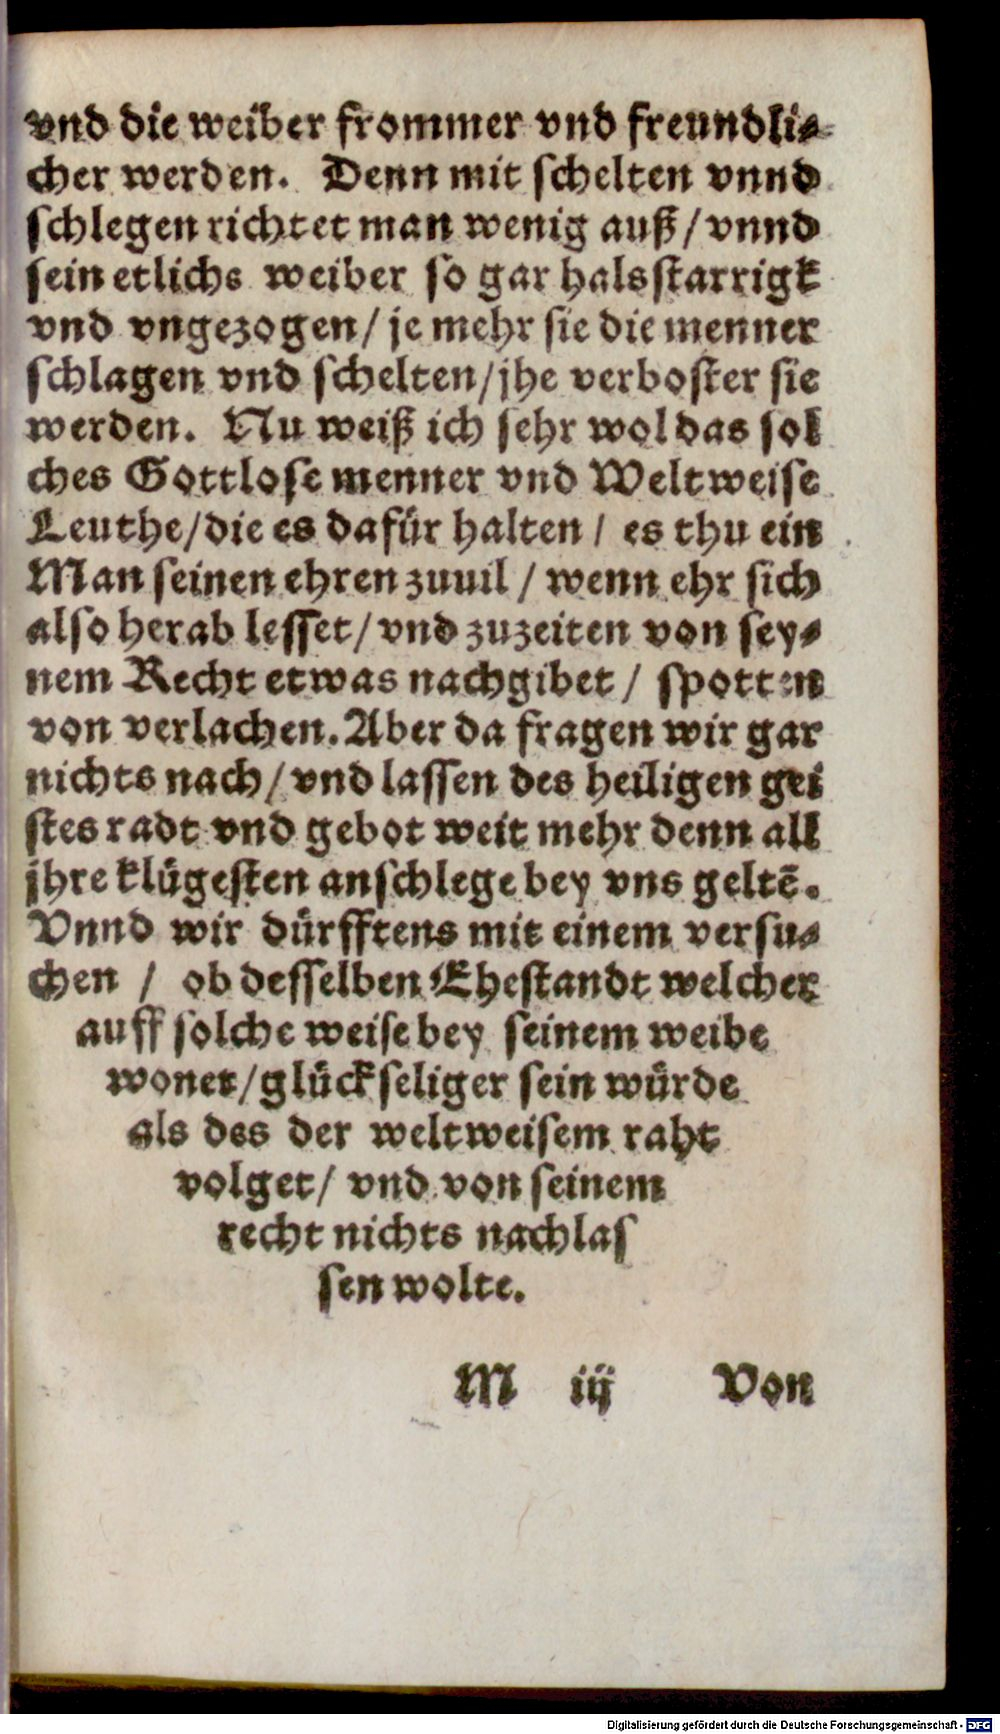 vnd die weiber frommer vnd freundli⸗
cher werden. Denn mit schelten vnnd
schlegen richtet man wenig auß / vnnd
sein etlichs weiber so gar halsstarrigk
vnd vngezogen / je mehr sie die menner
schlagen vnd schelten / jhe verboster sie
werden. Nu weiß ich sehr wol das sol
ches Gottlose menner vnd Weltweise
Leuthe / die es dafür halten / es thu ein
Man seinen ehren zuuil / wenn ehr sich
also herab lesset / vnd zuzeiten von sey⸗
nem Recht etwas nachgibet / spotten
von verlachen. Aber da fragen wir gar
nichts nach / vnd lassen des heiligen gei
stes radt vnd gebot weit mehr denn all
jhre klügesten anschlege bey vns geltē.
Vnnd wir dürfftens mit einem versu⸗
chen / ob desselben Ehestandt welcher
auff solche weise bey seinem weibe
wonet / glückseliger sein würde
als des der weltweisem raht
volget / vnd von seinem
recht nichts nachlas
sen wolte.
M iij Von
Digitalisierung gefördert durch die Deutsche Forschungsgemeinschaft - DFG